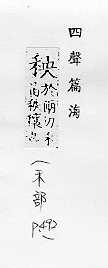 四聲篇海
秧於兩切禾
苗秧穰也
(禾部
p492